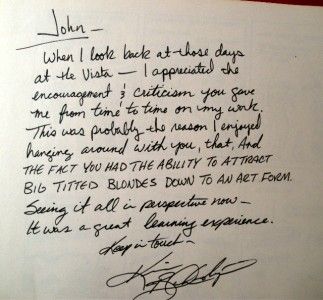 John –
When I look back at those days
at the Vista — I appreciated the
encouragement & criticism you gave
me from time to time on my work.
This was probably the reason I enjoyed
hanging around with you, that, And
THE FACT YOU HAD THE ABILITY TO ATTRACT
BIG TITTED BLONDES DOWN TO AN ART FORM.
Seeing it all in perspective now —
It was a great learning experience.
Keep in touch —